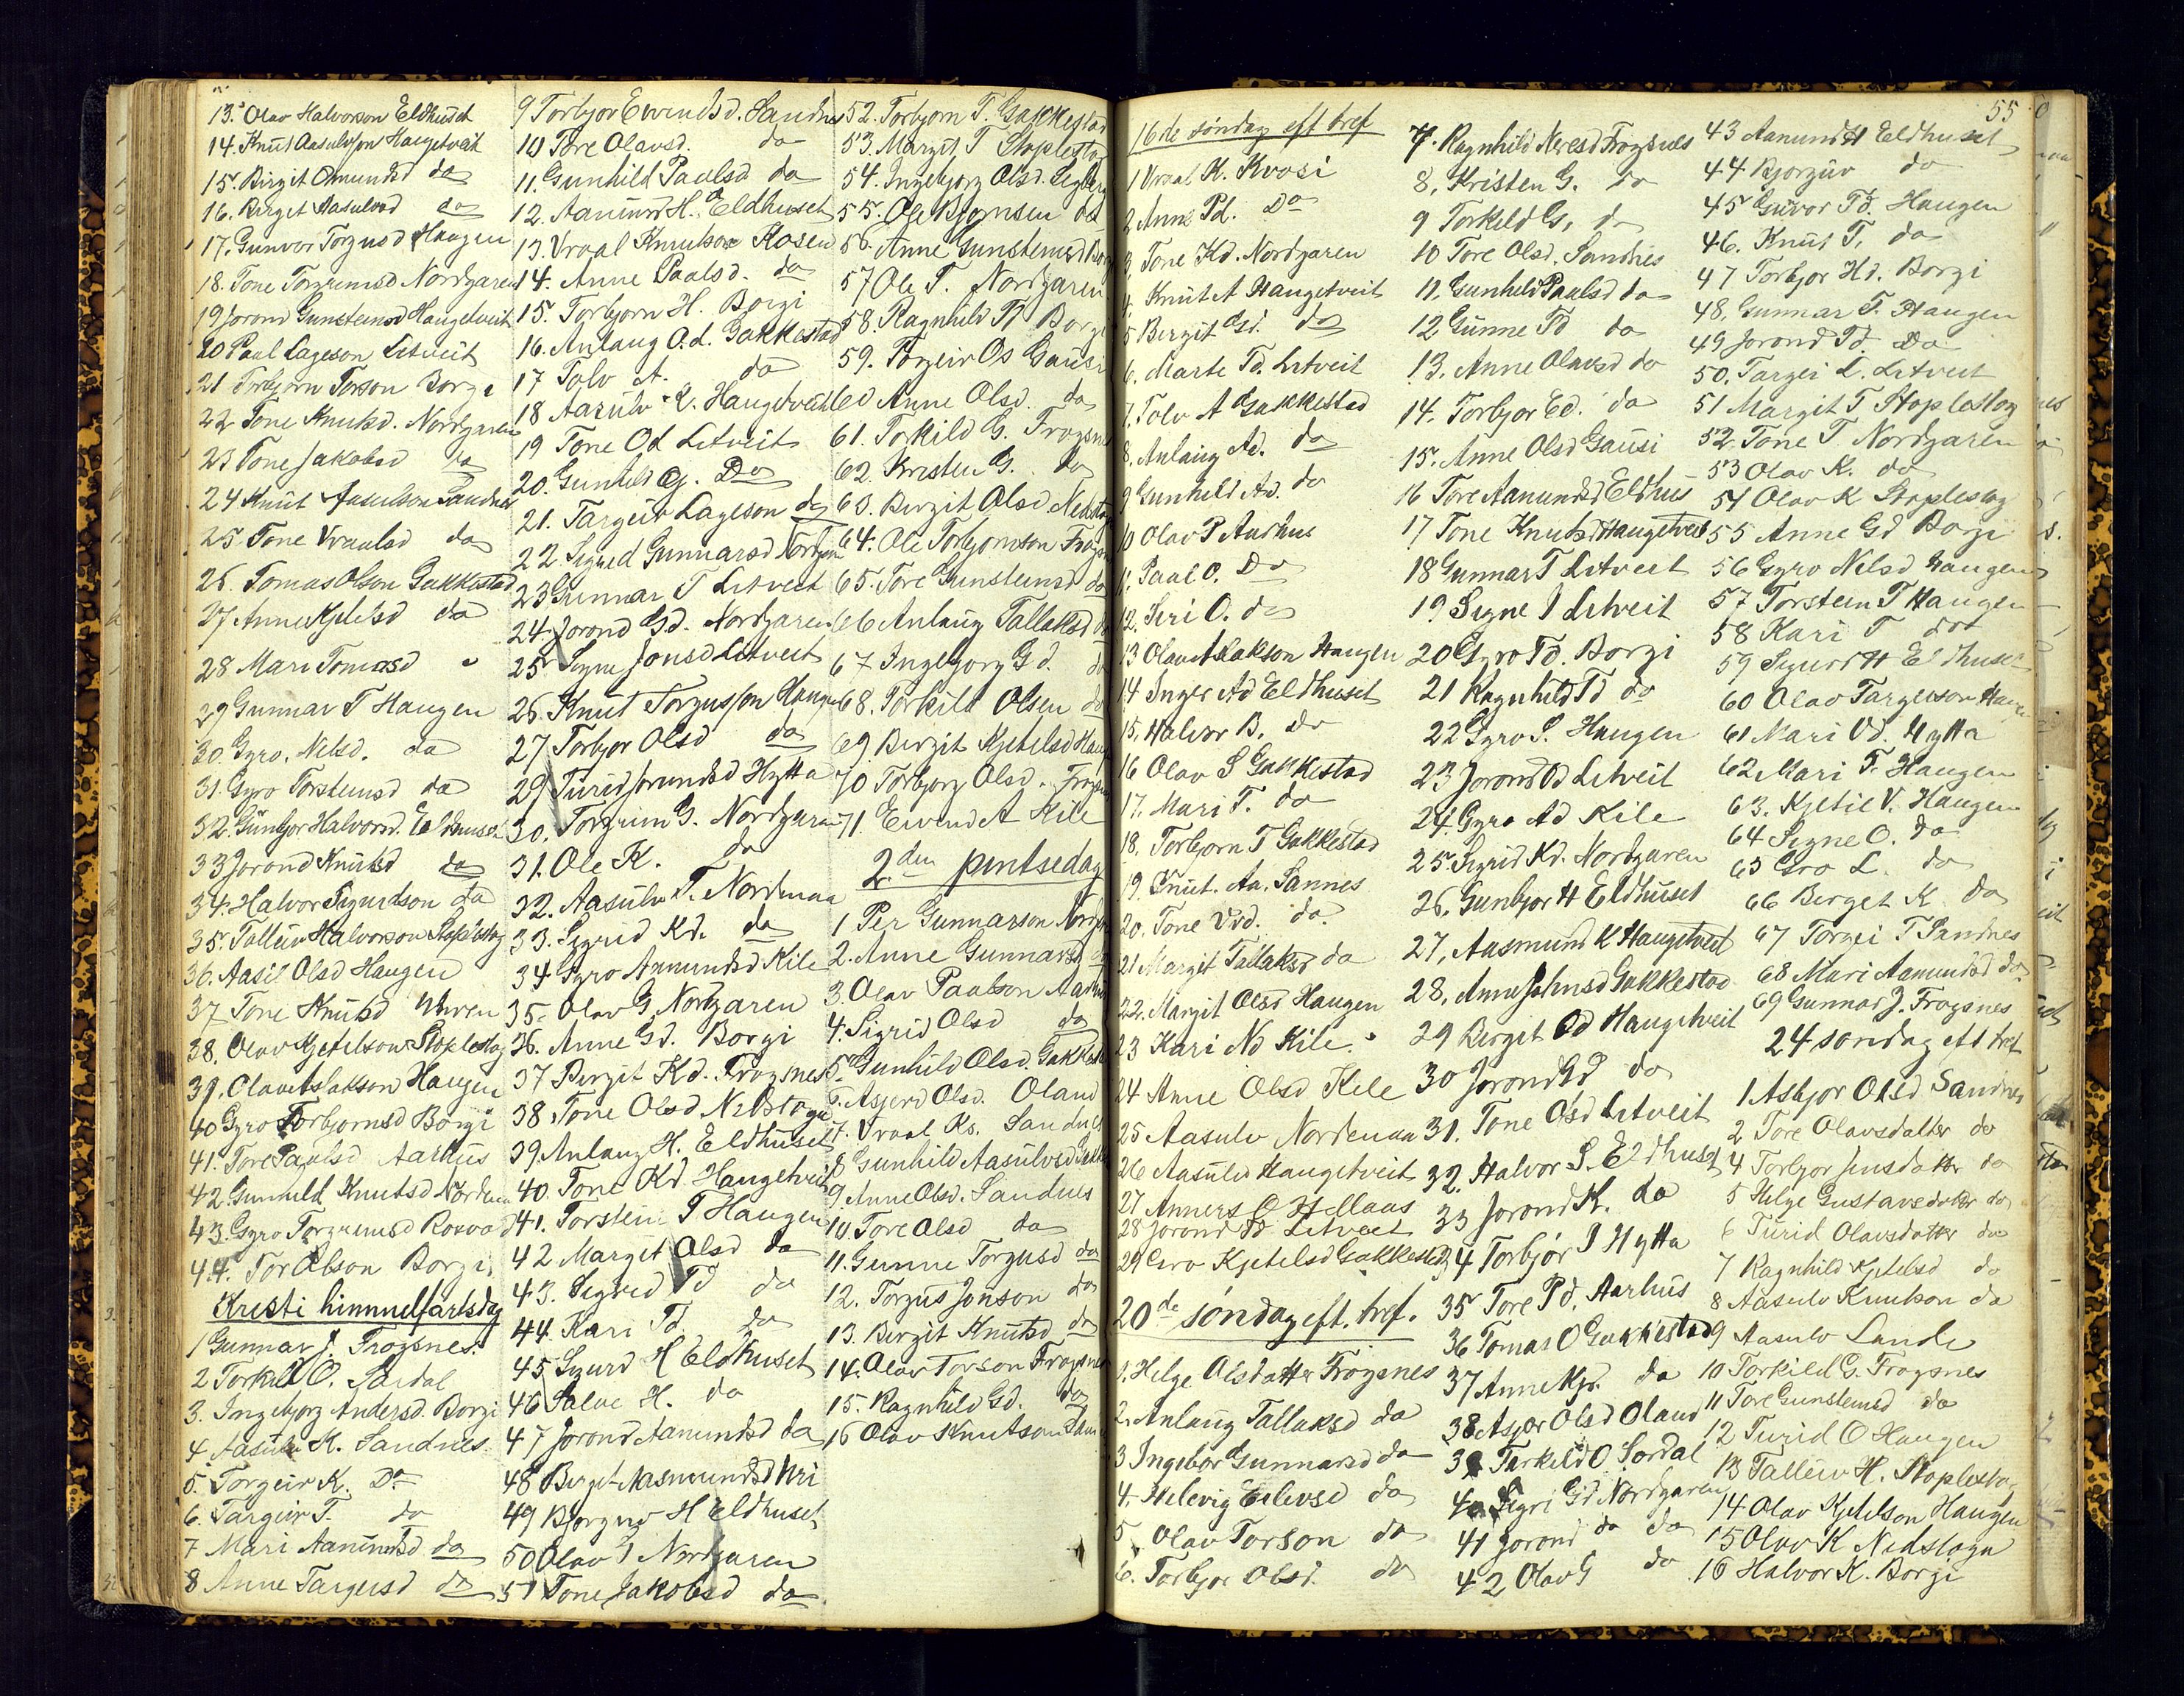 13. Olav Halvorson Eldhuset
14. Knut Aasulvson Haugetveit
15. Birgit Omundsd do
16. Birget Aasulvsd do
17. Gunvor Torgusd Haugen
18. Tone Torgrimsd Nordgaren
19 Jorond Gunsteinsd Haugetveit
20 Paul Lageson Litveit
21 Torbjorn Torson Borgi
22 Tone Knutsd. Nordgaren
23 Tone Jakobsd do
24 Knut Aasulvson Sandnes
25. Tone Vraalsd do
26. Tomas Olson Gakkestad
27 Anne Kjetelsd do
28 Mari Tomasd "
29 Gunnar T Haugen
30 Gyro. Nelsd. do
31. Gyro Torsteinsd do
32. Gunbjor Halvorsd. Eldhuset
33 Jorond Knutsd do
34. Halvor Sigurdson do
35. Tallein Halvorson Stoplestog
36. Aasil Olsd Haugen
37 Tone Knutsd Uhren
38. Olav Kjetelson Stoplestog
39. Olav Aslakson Haugen
40 Gyro Torbjornsd Borgi
41. Tore Paulsd Aarhus
42. Gunnuld Knutsd Norden
43. Gyro Torgrimsd Rosvo
44. Tor Olson Borgi
Kristi himmelfartsdag
1 Gunnar J. Frogsnes.
2 Torkild O. Sordal
3. Ingebjorg Andersd. Borgi
4 Aasulv K. Sandnes
5. Torgeir K. Do
6. Targeir T. do
7 Mari Aanundsd do
8 Anne Targeisd do
9 Torbjor Eivindsd. Sandnes
10 Tore Olavsd. do
11. Gunhild Paulsd do
12. Aanund H. Eldhuset
13. Vraal Knutson Rosen
14. Anne Paalsd. do
15. Torbjorn H. Borgi
16. Anlaug O.d. Gakkestad
17 Tolv A. do
18 Aasulv K. Haugetveit
19 Tone Od Litveit
20. Gunhild G. Do
21. Targeir Lageson do
22 Sigrid Gunnarsd Nordgaren
23 Gunnar T Litveit
24. Jorond Gd. Nordgaren
25 Signe Jonsd Litveit
26. Knut Torgusson Haugen
27 Torbjor Olsd do
29 Turid Jorundsd Hytta
30. Torgrim G. Nordgaren
31. Ole K. do
32. Aasulv T. Nordenaa
33. Sigrid Kd. do
34 Gyro Aanundsd Kile
35. Olav G Nordgaren
36. Anne Gd. Borgi
37 Birgit Kd. Frogsnes
38. Tone Olsd Nedstogu
39 Anlaug H. Eldhuset
40. Tone Kd. Haugetveit
41. Torstein T Haugen
42 Margit Olsd do
43. Sigrid Td do
44. Kari Td. do
45. Sigurd H Eldhuset
46 Salve H. do
47 Jorond Aanundsd do
48 Birget Aasmundsd Uri
49 Bjorgur H Eldhuset
50 Olav T Nordgaren
51 Tone Jakobsd do
52. Torbjorn T. Gakkestad
53. Margit T Stoplestog
54. Ingebjorg Olsd.
55. Ole Bjornsen do
56. Anne Gunsteinsd Borgi
57 Ole T. Nordgaren
58. Ragnhild Td Borgi
59. Torgeir Os Gausi
60 Anne Olsd. do
61. Torkild G. Frogsnes
62. Kristen G. do
63. Birgit Olsd Nedstogu
64. Ole Torbjornson Frogsn
65. Tore Gunsteinsd do
66 Anlaug Tallaksd do
67 Ingebjorg Gd. do
68. Torkild Olsen do
69. Birgit Kjetelsd Haugen
70 Torbjorg Olsd. Frogsnes
71. Eivind A Kile
2.den pintsedag
1 Per Gunnarson Nordgaren
2. Anne Gunnarsd do
3. Olav Paulson Aarhus
4. Sigrid Olsd do
5. Gunhild Olsd. Gakkestad
6. Asjerd Olsd. Oland
7. Vraal Ks. Sandnes
8 Gunhild Aasulvsd
9. Anne Olsd. Sandnes
10 Tore Olsd do
11. Gunne Torgusd do
12. Torgus Jonson do
13. Birgit Knutsd do
14. Olav Torson Frogsnes
15. Ragnhild Gd. do
16 Olav Knutson
55
16de søndag eft tref
1 Vraal K. Kvosi
2 Anne Pd. Do
3. Tone Kd. Nordgaren
4. Knut A Haugetveit
5 Bergit Gd. do
6. Marte Td. Litveit
7. Tolv A Gakkestad
8. Anlaug Ad. do
9 Gunhild Ad. do
10 Olav P Aarhus
11. Paal O. Do
12. Siri O. do
13 Olav Aslakson Haugen
14 Inger Ad Eldhuset
15. Halvor B. do
16 Olav S Gakkestad
17. Mari T. do
18. Torbjorn T Gakkestad
19. Knut. Aa. Sannes
20. Tone Vd. do.
21 Margit Tallaksd do
22. Margit Olsd Haugen
23 Kari Nd Kile.
24 Anne Olsd Kile
25 Aasulv Nordenaa
26 Aasulv Haugetveit
27 Anners O Hellaas
28 Jorond Td Litveit
29 Gro Kjetelsd Gakkestad
20de søndag eft. tref.
1. Helge Olsdatter Frogsnes
2. Anlaug Tallaksd do
3 Ingebor Gunnarsd do
4. Helevig Eilevsd do
5. Olav Torson do
6. Torbjor Olsd. do
7. Ragnhild Neresd Frogsnes
8. Kristen G. do
9 Torkeld G. do
10 Tore Olsd. Sandnes
11. Gunheld Paulsd do
12 Gunne Td do
13. Anne Olavsd do
14. Torbjor Ed. do
15. Anne Olsd Gausi
16 Tore Aanundsd Eldhus
17 Tone Knutsd Haugetveit
18 Gunnar T Litveit
19. Signe J Litveit
20 Gyro Td. Borgi
21 Ragnhild Td do
22 Gyro S. Haugen
23 Jorond Od Litveit
24. Gyro Ad Kile
25. Sigrid Kd. Nordgaren
26. Gunbjor H Eldhuset
27. Aasmund K Haugetveit
28. Anne Johnsd Gakkestad
29 Berget Od Haugetveit
30 Jorond Gd do
31. Tone Olsd Litveit
32. Halvor S. Eldhuset
33 Jorond K. do
34 Torbjør J Hytta
35 Tore Pd. Aarhus
36 Tomas O Gakkestad
37 Anne Kjd. do
38 Asjer Olsd Oland
39 Torkeld O Sordal
40 Sigri Gd Nordgaren
41 Jorond do do
42 Olav G do
43 Aanund H Eldhuset
44 Bjorgur do
45 Guvor Td. Haugen
46. Knut T. do
47 Torbjor Hd. Borgi
48. Gunnar T. Haugen
49 Jorond Td Do
50. Targei L. Litveit
51 Margit T Stoplestog
52. Tone T. Nordgaren
53 Olav K. do
54 Olav K Stoplestog
55 Anne Gd Borgi
56 Gyro Nelsd Haugen
57 Torstein T Haugen
58 Kari T do
59 Sigurd H Eldhuset
60 Olav Targeison Haugen
61 Mari Od. Hytta
62 Mari T. Haugen
63. Kjetil V. Haugen
64 Signe O. do
65 Gro L. do
66 Berget K do
67 Torgei T Sandnes
68 Mari Aanundsd do
69 Gunnar J. Frogsnes
24 søndag eft tref
1 Asbjor Olsd Sandnes
2 Tore Olavsdatter do
4 Torbjor Jensdatter do
5 Helge Gustavsdatter do
6 Turid Olavsdatter do
7 Ragnhild Kjetelsd do
8 Aasulv Knutson do
9 Aasulv Lande
10 Torkild G. Frogsnes
11 Tore Gunsteinsd do
12 Turid O Haugen
13 Talleiv H. Stoplestog
14 Olav Kjetelson Haugen
15 Olav K Nedstogu
16 Halvor K. Borgi